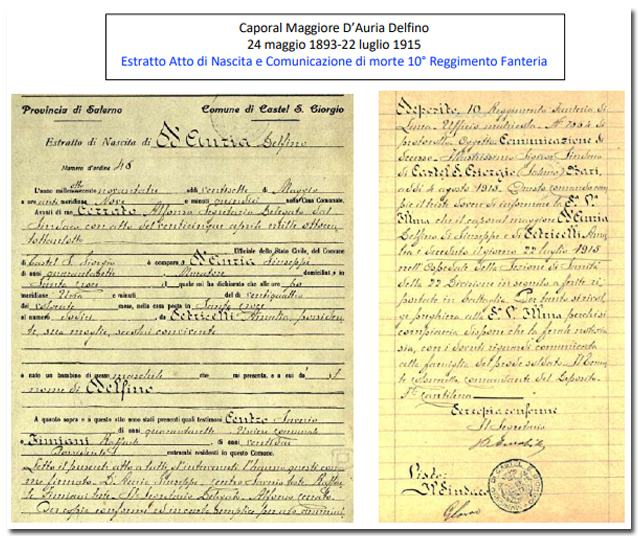 Caporal Maggiore D'Auria Delfino
24 maggio 1893-22 luglio 1915
Estratto Atto di Nascita e Comunicazione di morte 10° Reggimento Fanteria
Provincia di Salerno Comune di Castel S. Giorgio
Estratto di Nascita di D'Auria Delfino
Numero d'ordine 48
L'anno millenovecento otto novantatre addì ventisette di Maggio
a ore anti meridiane Nove e minuti quindici nella Casa Comunale.
Avanti di me Cerrato Alfonso Segretario Delegato dal
Sindaco con atto del venticinque aprile mille ottocento
ottantotto
Ufficiale dello Stato Civile, del Comune
di Castel S. Giorgio è comparso D'Auria Giuseppe
di anni quarantasette Muratore domiciliato in
Santa Croce il quale mi ha dichiarato che alle ore po
meridiane Una e minuti del ventiquattro
del corrente mese, nella casa posta in Santa Croce
al numero da Petricelli Amalia
sua moglie, seco lui convivente
è nato un bambino di sesso maschile che mi presenta, e a cui dà il
nome di Delfino
A quanto sopra e a questo atto sono stati presenti quali testimoni Centro Saverio
di anni quarantasette Usciere comunale
e Fimiani Raffaele di anni
Possidente entrambi residenti in questo Comune.
Letto il presente atto a tutti gl'intervenuti l'hanno questi con
me firmato D'Auria Giuseppe, Centro Saverio teste, Raffae
le Fimiani teste. Il Segretario Delegato Alfonso Cerrato.
Per copia conforme
Deposito 10 Reggimento Fanteria di
Linea Ufficio matricola N° 7954 di
protocollo Oggetto Comunicazione di
decesso Illustrissimo Signor Sindaco
di Castel S. Giorgio (Salerno) Bari,
addì 4 agosto 1915. Questo comando com
pie il triste dovere di informare la S. V.
Ill.ma che il caporal maggiore D'Auria
Delfino di Giuseppe e di Petricelli Ama
lia è deceduto il giorno 22 luglio 1915
nell'Ospedale della Sezione di Sanità
della 22 Divisione in seguito a ferite ri
portate in battaglia. Pertanto si rivol
ge preghiera alla S. V. Ill.ma perchè si
compiaccia disporre che la ferale notizia
sia, con i dovuti riguardi comunicata
alla famiglia del prode soldato. Il Tenen
te colonnello comandante del Deposito
Per copia conforme
Il Segretario
Visto:
Il Sindaco